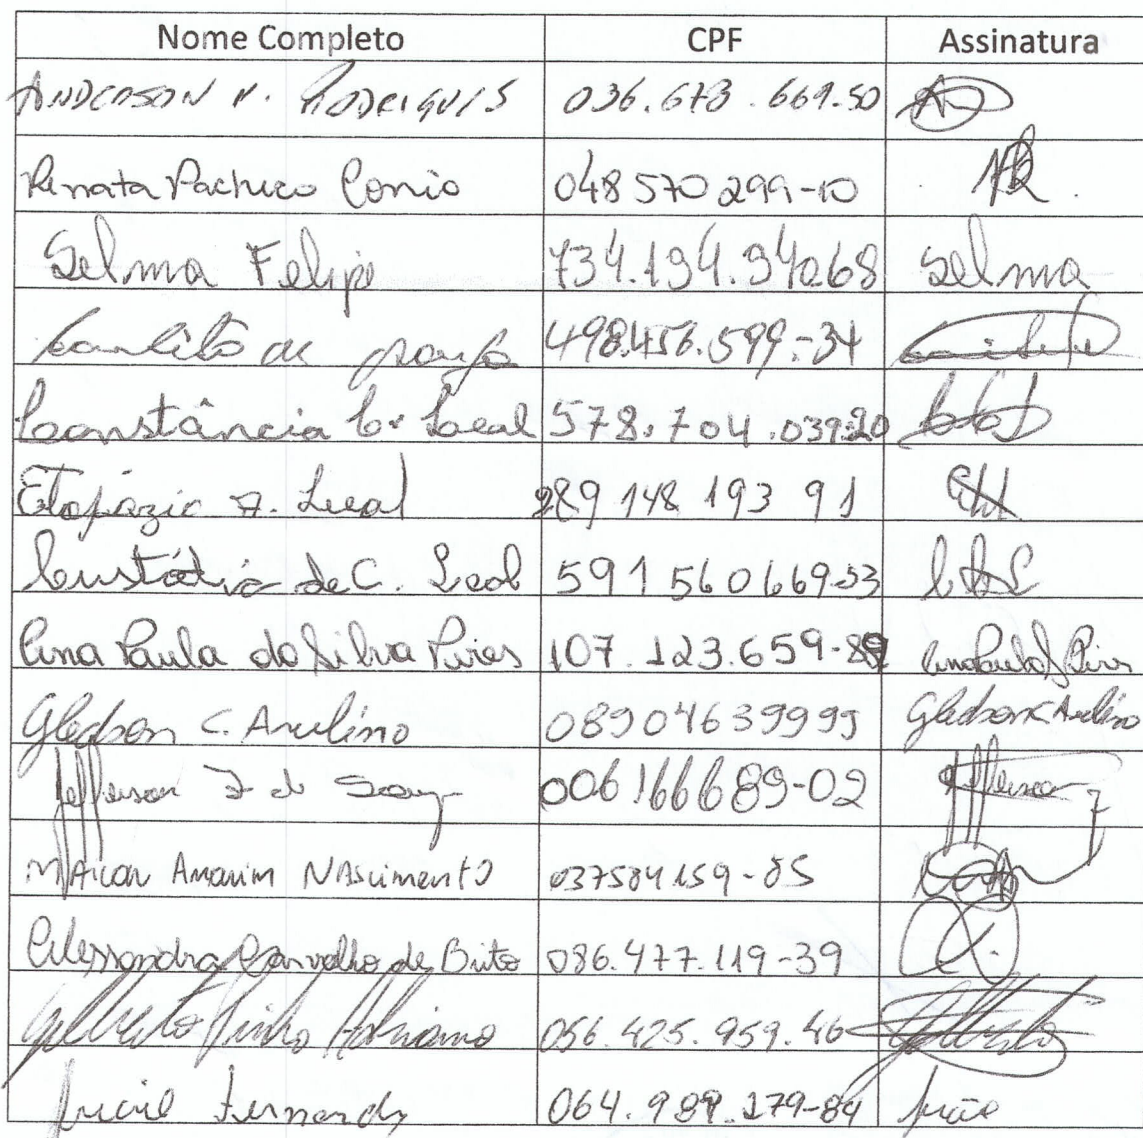 Nome Completo CPF Assinatura
ANDERSON N. RODRIGUES 036.673.669.50
Renata Pacheco Conio 048 570 299-10
Selma Felipe 734.194.940.68 Selma
498.456.599-34
Constância C. Leal 578.704.039.20
Etopázio A. Leal 289 148 193 91
Custódia de C. Leal 591 560 669-53
Ana Paula da Silva Pires 107.123.659-89 Ana Paula S Pires
Gledson C. Avelino 08904639999 Gledson C Avelino
Jefferson F de Souza 006166689-02 Jefferson
MAicon Amorim NAscimento 037584159-85
Alessandra Carvalho de Brito 086.477.119-39
Gilberto Pinho Adriano 056.425.959.46 Gilberto
Fernandes 064.989.179-84